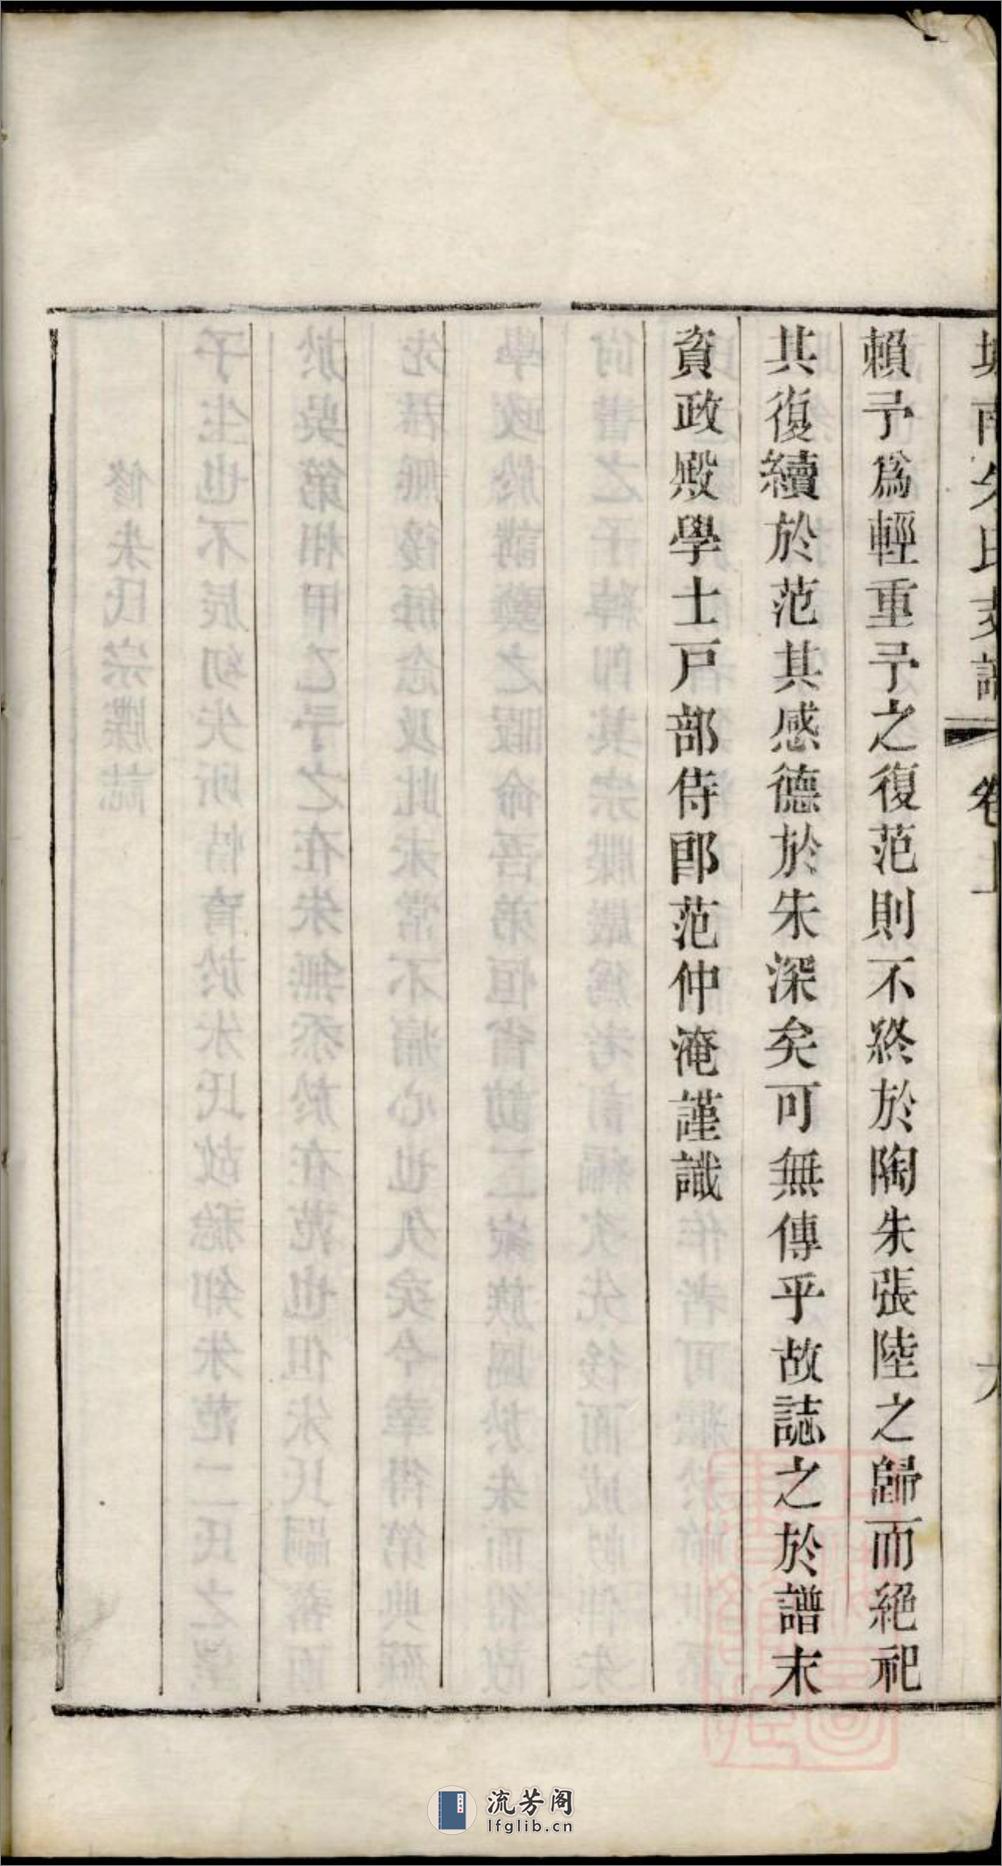 城南朱氏支譜 卷上 九
賴予爲輕重予之復范則不終於陶朱張陸之歸而絕祀
其復續於范其感德於朱深矣可無傳乎故誌之於譜末
資政殿學士戸部侍郎范仲淹謹識
流芳阁
lfglib.cn